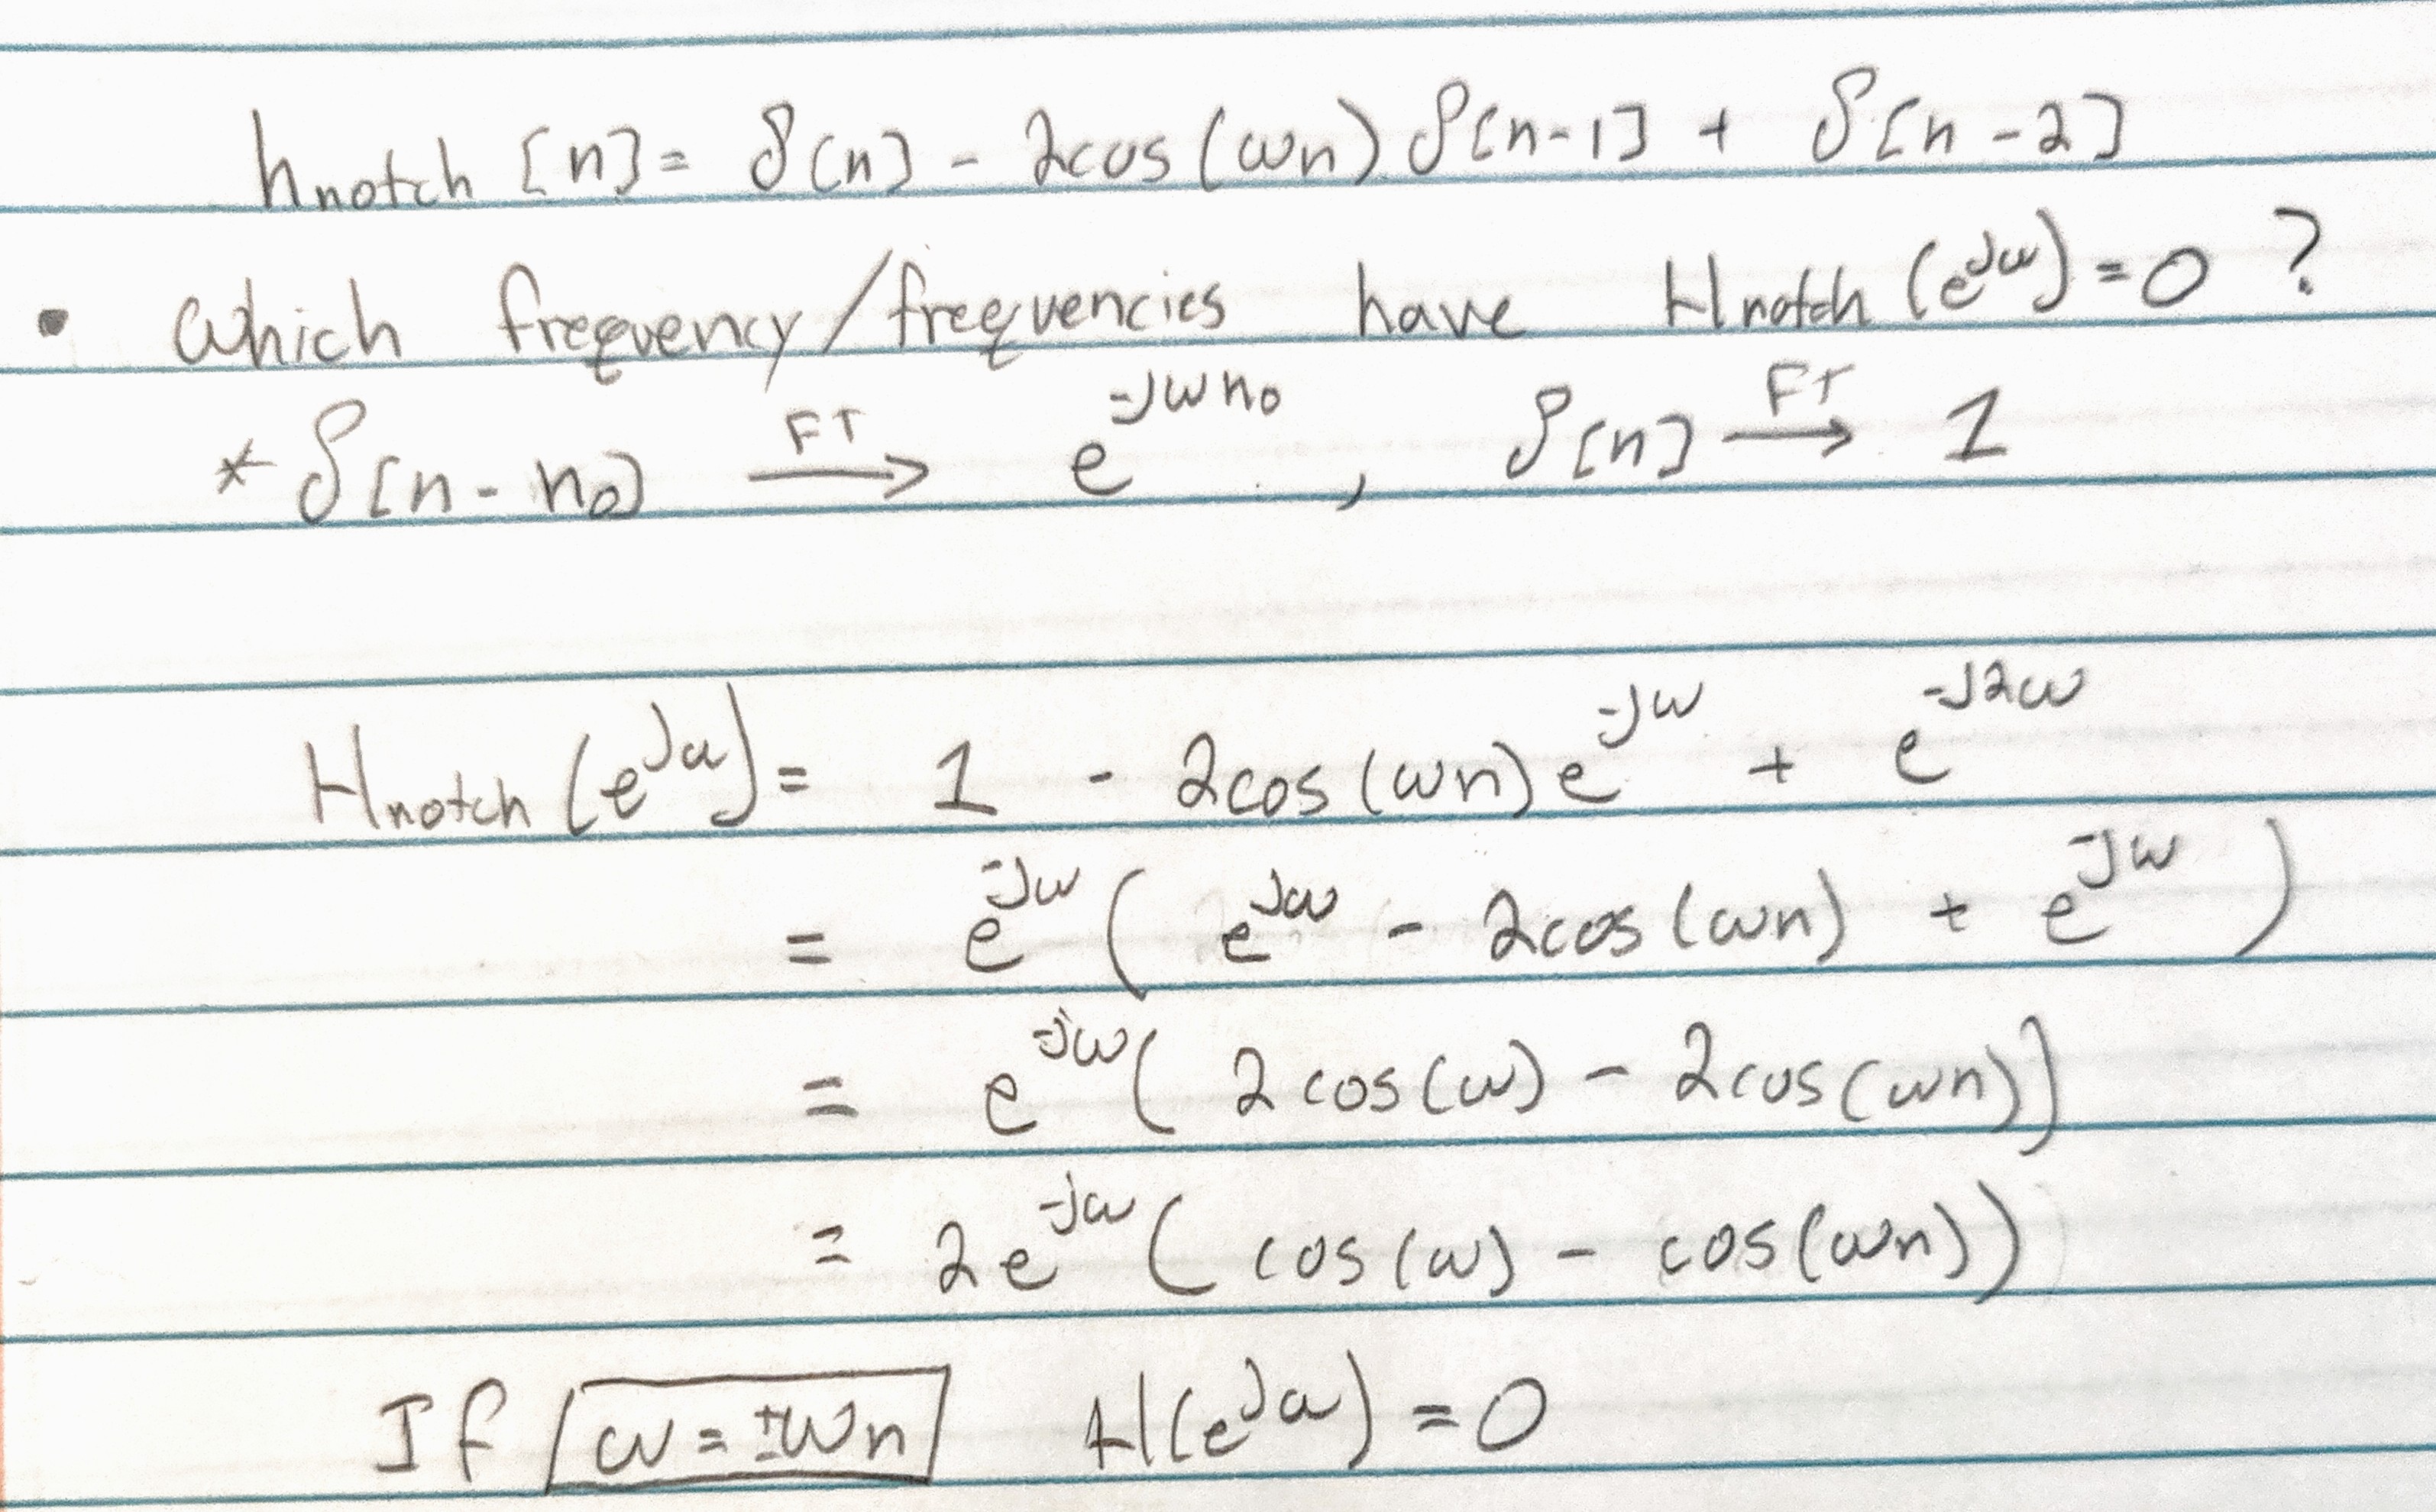 hnotch [n] = δ[n] - 2cos(ωn) δ[n-1] + δ[n-2]
• Which frequency/frequencies have Hnotch (e^jω) = 0 ?
* δ[n - n₀] FT→ e^-jωn₀ , δ[n] FT→ 1
Hnotch (e^jω) = 1 - 2cos(ωn) e^-jω + e^-j2ω
= e^-jω ( e^jω - 2cos(ωn) + e^-jω )
= e^-jω ( 2cos(ω) - 2cos(ωn) )
= 2e^-jω ( cos(ω) - cos(ωn) )
If ω = ±ωn H(e^jω) = 0